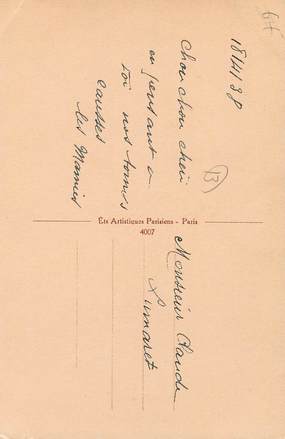 18/11/38
Chouchou cheri
en pensant a
toi nos bonnes
caresses
les Mamies
13
Éts Artistiques Parisiens - Paris
4007
Monsieur Claude